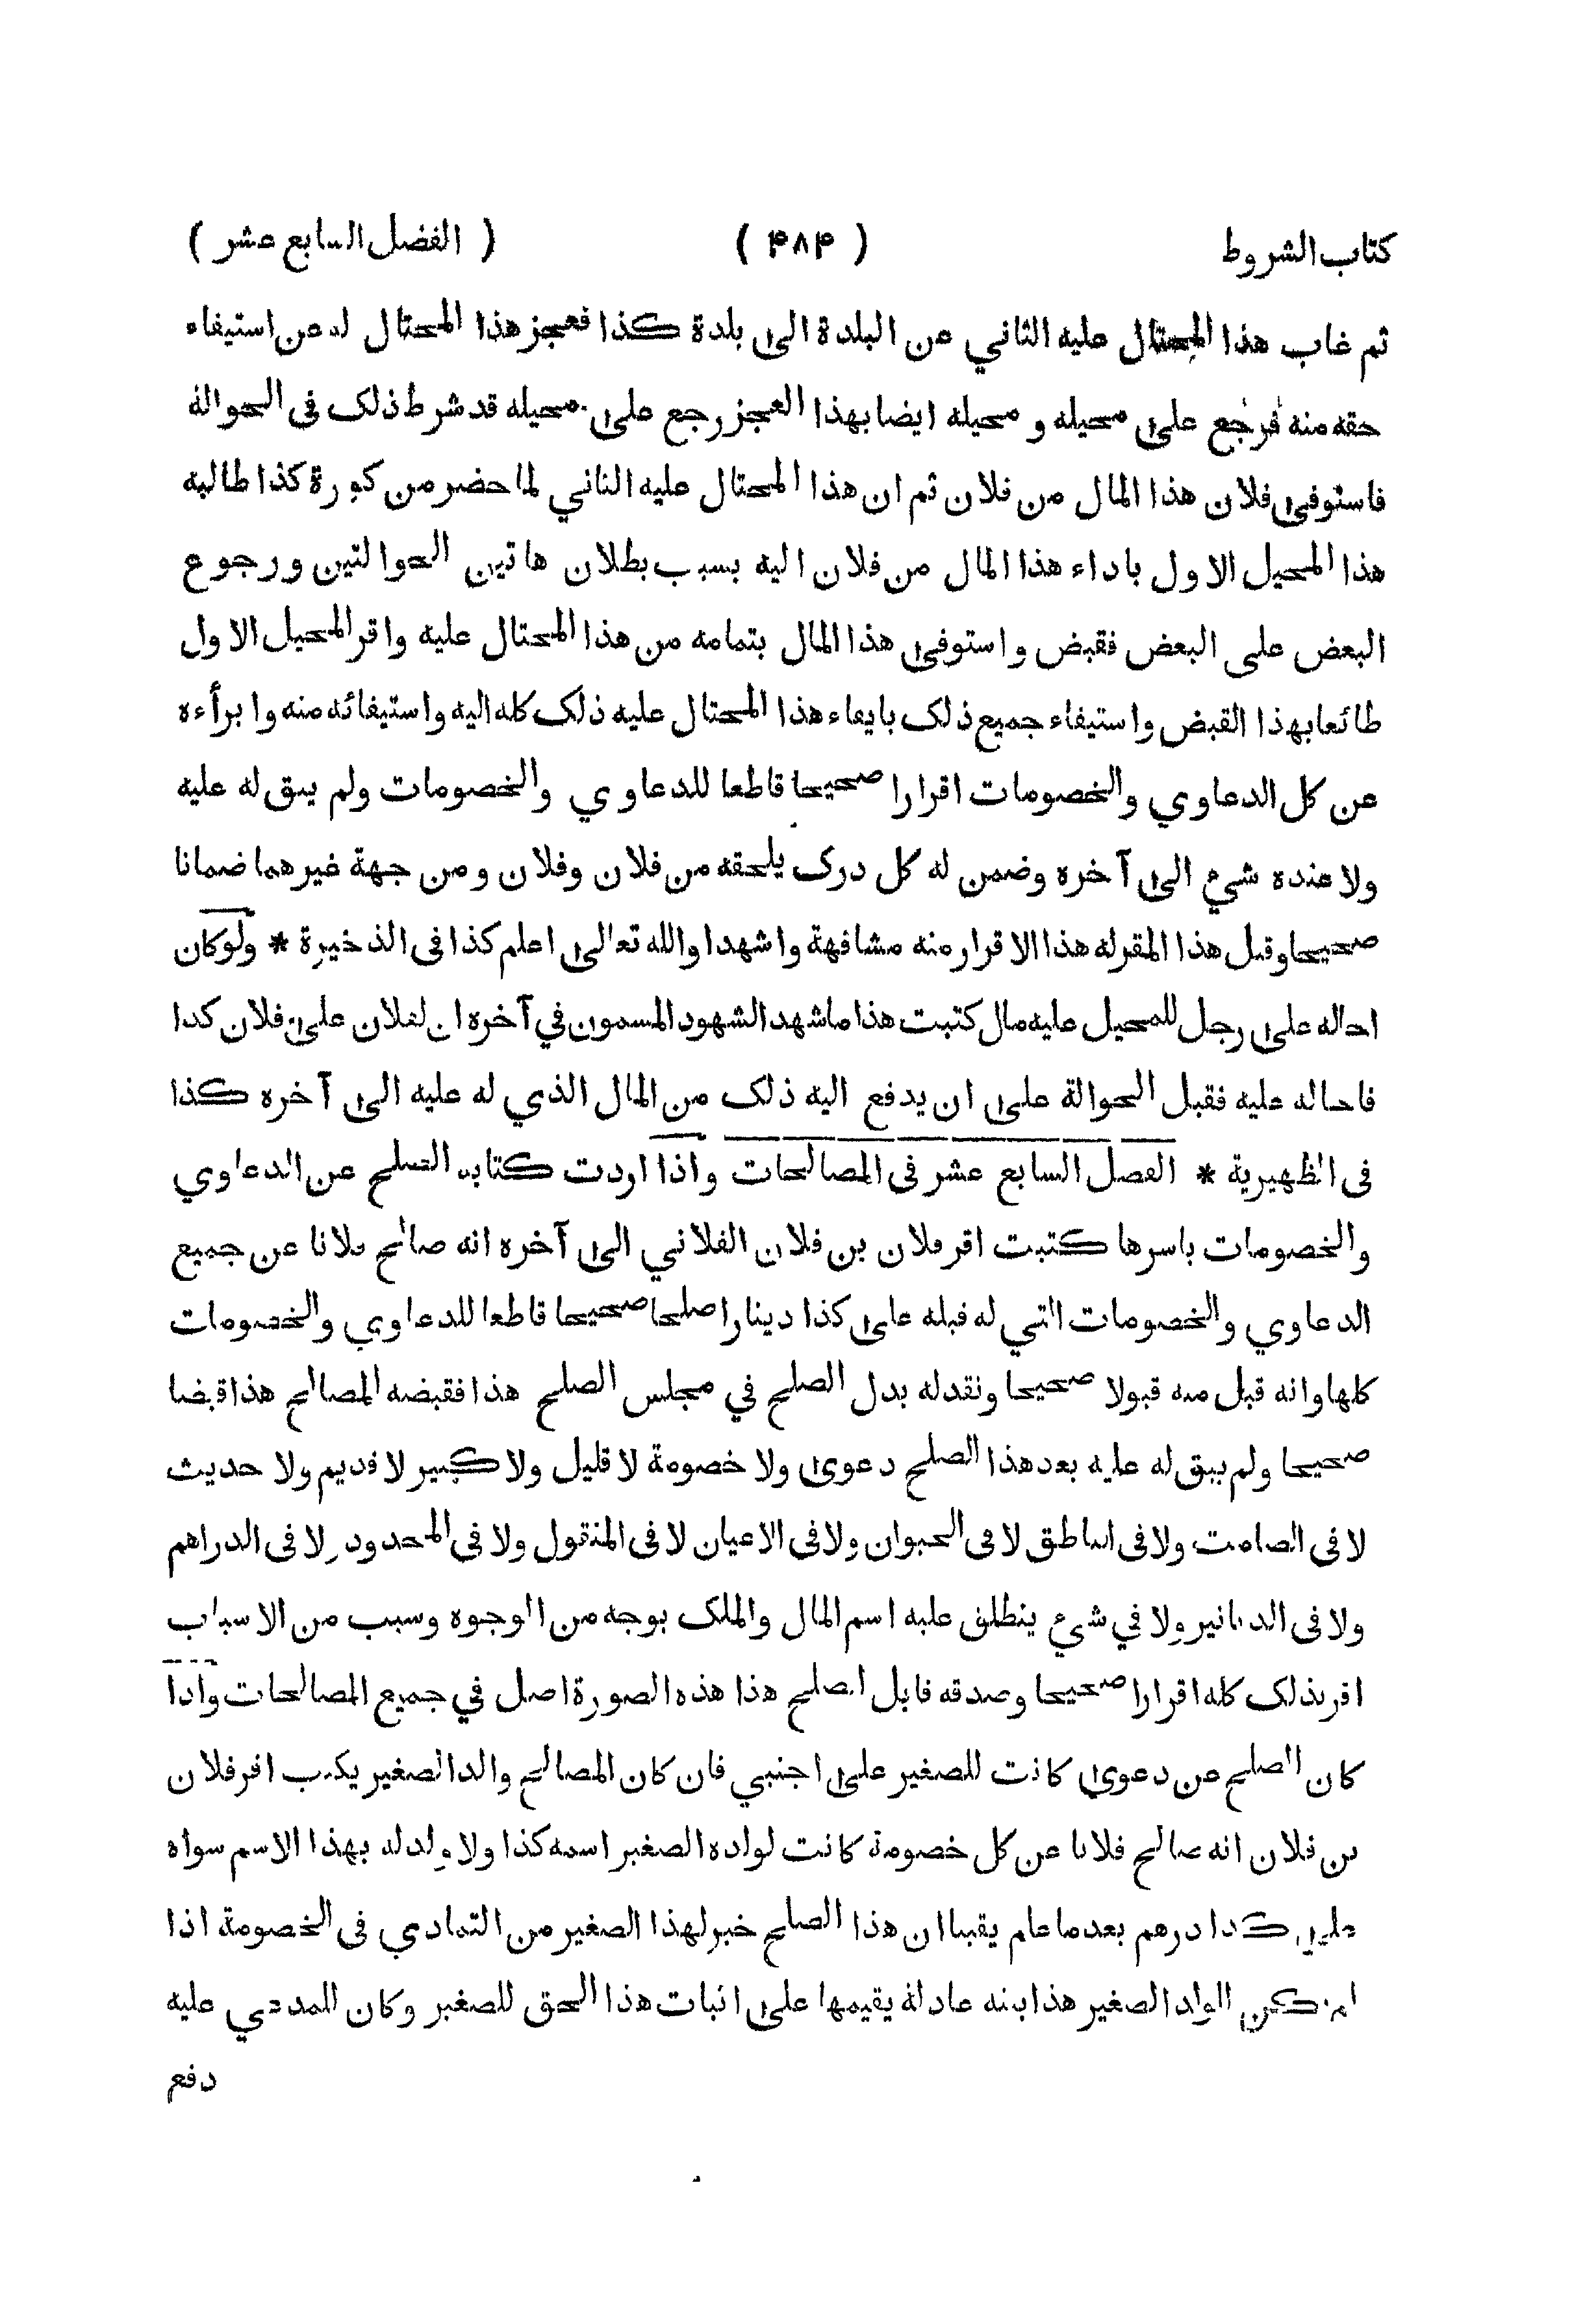 كتاب الشروط ( ۴۸۴ ) ( الفصل السابع عشر )
ثم غاب هذا المحتال عليه الثاني عن البلدة الى بلدة كذا فعجز هذا المحتال له عن استيفاء
حقه منه فرجع على محيله و محيله ايضا بهذا العجز رجع على محيله قد شرط ذلك فى الحوالة
فاستوفى فلان هذا المال من فلان ثم ان هذا المحتال عليه الثاني لما حضر من كورة كذا طالبه
هذا المحيل الاول باداء هذا المال من فلان اليه بسبب بطلان هاتين الحوالتين ورجوع
البعض على البعض فقبض واستوفى هذا المال بتمامه من هذا المحتال عليه واقر المحيل الاول
طائعا بهذا القبض واستيفاء جميع ذلك بايفاء هذا المحتال عليه ذلك كله اليه واستيفائه منه وابرأءه
عن كل الدعاوي والخصومات اقرارا صحيحا قاطعا للدعاوي والخصومات ولم يبق له عليه
ولا عنده شيء الى آخره وضمن له كل درك يلحقه من فلان وفلان ومن جهة غيرهما ضمانا
صحيحا وقبل هذا المقر له هذا الاقرار منه مشافهة واشهدا والله تعالى اعلم كذا فى الذخيرة * ولو كان
احاله على رجل للمحيل عليه مال كتبت هذا ما شهد الشهود المسمون في آخره ان لفلان على فلان كذا
فاحاله عليه فقبل الحوالة على ان يدفع اليه ذلك من المال الذي له عليه الى آخره كذا
فى الظهيرية * الفصل السابع عشر فى المصالحات واذا اردت كتابة الصلح عن الدعاوي
والخصومات باسرها كتبت اقر فلان بن فلان الفلاني الى آخره انه صالح فلانا عن جميع
الدعاوي والخصومات التي له قبله على كذا دينارا صلحا صحيحا قاطعا للدعاوي والخصومات
كلها وانه قبل منه قبولا صحيحا ونقد له بدل الصلح في مجلس الصلح هذا فقبضه المصالح هذا قبضا
صحيحا ولم يبق له عليه بعد هذا الصلح دعوى ولا خصومة لا قليل ولا كبير لا قديم ولا حديث
لا فى الصامت ولا فى الناطق لا فى الحيوان ولا فى الاعيان لا فى المنقول ولا فى المحدود ولا فى الدراهم
ولا فى الدنانير ولا في شيء ينطلق عليه اسم المال والملك بوجه من الوجوه وسبب من الاسباب
اقر بذلك كله اقرارا صحيحا وصدقه قابل الصلح هذا هذه الصورة اصل في جميع المصالحات واذا
كان الصلح عن دعوى كانت للصغير على اجنبي فان كان المصالح والد الصغير يكتب اقر فلان
بن فلان انه صالح فلانا عن كل خصومة كانت لولده الصغير اسمه كذا ولا ولد له بهذا الاسم سواه
على كذا درهم بعد ما علم يقينا ان هذا الصلح خير لهذا الصغير من التمادي فى الخصومة اذا
لم تكن الولد الصغير هذا بينة عادلة يقيمها على اثبات هذا الحق للصغير وكان للمدعي عليه
دفع